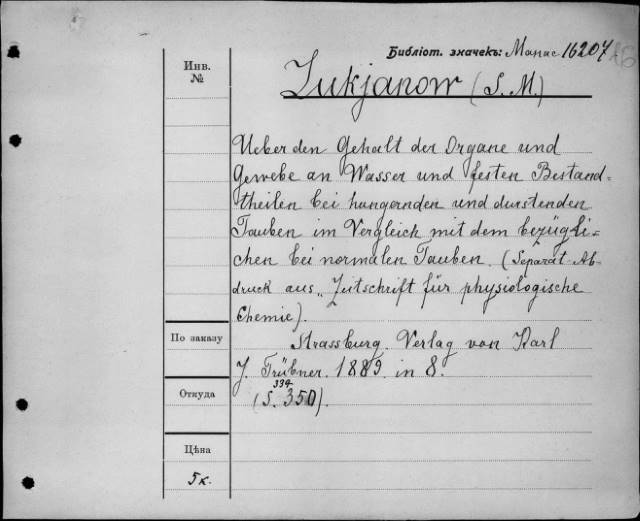 Библіот. значекъ: Манас 16207
Инв.
№
Lukjanow (S. M.)
Ueber den Gehalt der Organe und
Gewebe an Wasser und festen Bestand=
theilen bei hungernden und durstenden
Tauben im Vergleich mit dem bezügli=
chen bei normalen Tauben. (Separat-Ab-
druck aus „Zeitschrift für physiologische
Chemie).
По заказу
Strassburg. Verlag von Karl
J. Trübner. 1889. in 8.
334
Откуда
(S. 350).
Цѣна
5к.